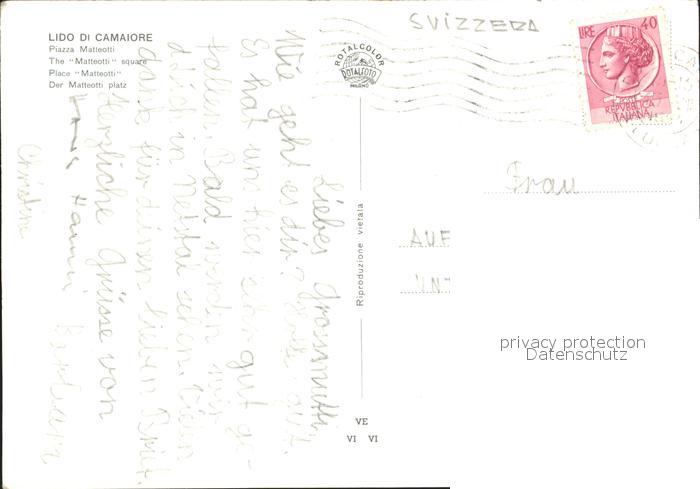 LIDO DI CAMAIORE
Piazza Matteotti
The "Matteotti" square
Place "Matteotti"
Der Matteotti platz
ROTALCOLOR
ROTALFOTO
MILANO
SVIZZERA
LIRE 40
POSTE
REPVBBLICA
ITALIANA
Liebes Grossmutti
Wie geht es dir? Hoffe gut.
Es hat uns hier sehr gut ge-
fallen. Bald werden wir
dich in Netstal sehen. Vielen
dank für deinen lieben Brief.
Herzliche Grüsse von
Hanni Barbara
Christina
Riproduzione vietata
VE
VI VI
Frau
AUF
UNT
privacy protection
Datenschutz